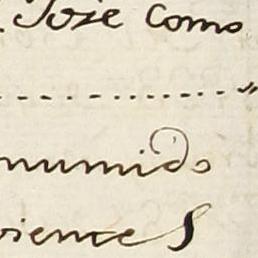 Jose como
............ "
numido
viente S